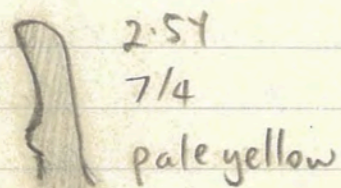 2.5Y
7/4
pale yellow